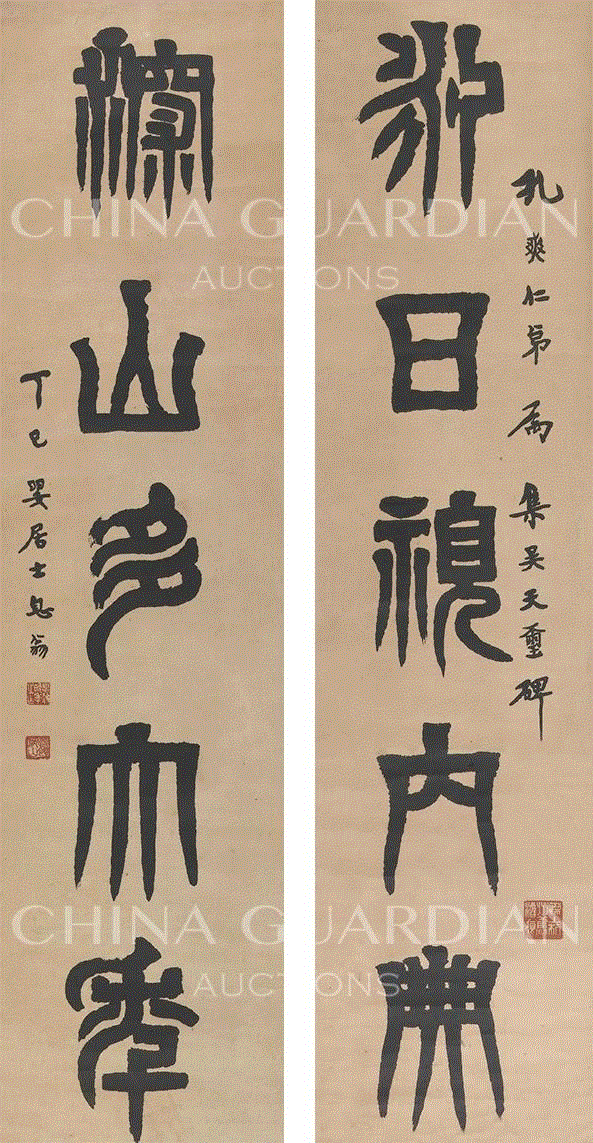 永日視內典
孔爽仁弟屬 集吴天璽碑
深山多大年
丁巳嬰居士息翁
CHINA GUARDIAN
AUCTIONS
CHINA GUARDIAN
AUCTIONS